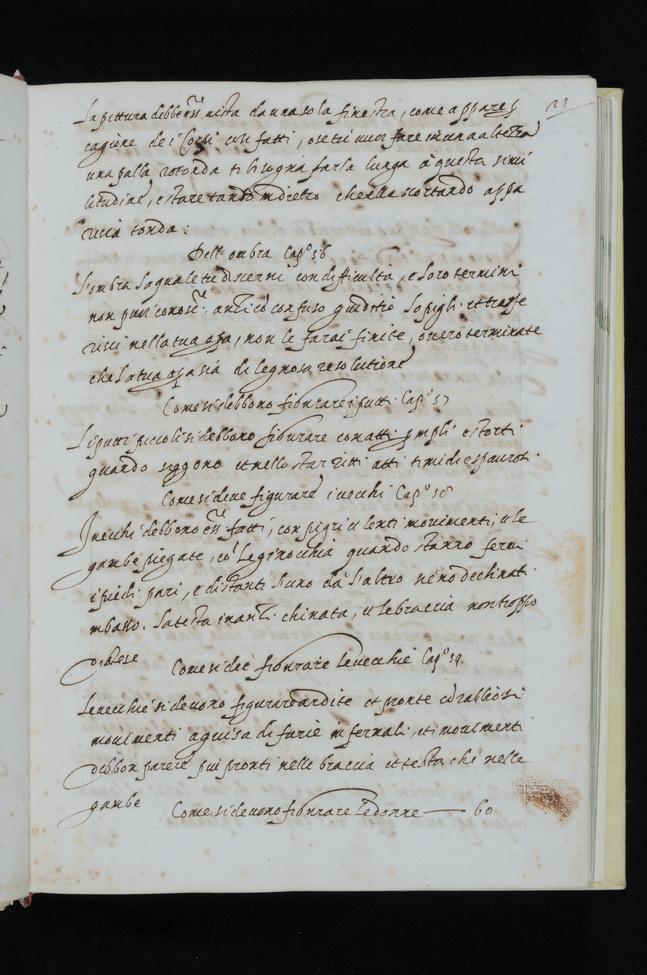 La pittura debbe ess̃ vista da una sola finestra, come appare p
cagione de i Corpi così fatti, o se tu vuoi fare in una altezza
una palla rotonda ti bisogna farla lunga a questa simi
litudine, e stare tanto indietro che ella scortando appa
risca tonda:
Dell'ombra Cap.º 56
L'ombra laquale tu discerni con difficulta, e loro termini
non puoi conosc̃. anzi cõ confuso giuditio lo pigli et trasfe
risci nella tua opa, non le farai finite, overo terminate
che la tua opa sia di legnosa resolutione
Come si debbono figurare i putti. Cap.º 57
Li putti piccoli si debbono figurare con atti pmpti e storti
quando seggono et nello star ritti atti timidi e spauroti.
Come si deve figurare i vecchi Cap.º 58
I vecchi debbono ess̃ fatti, con pigri e lenti movimenti, e le
gambe piegate, cõ le ginocchia quando stanno fermi
i piedi pari, e distanti l'uno da l'altro sieno declinati
in basso. la testa inanzi chinata, e le braccia non troppo
distese
Come si deè figurare le vecchie Cap.º 59
Le vecchie si devono figurar ardite et pronte cõ rabbiosi
movimenti a guisa di furie infernali, et i movimenti
debbon parere piu pronti nelle braccia et testa che nelle
gambe
Come si devono figurare le donne — 60